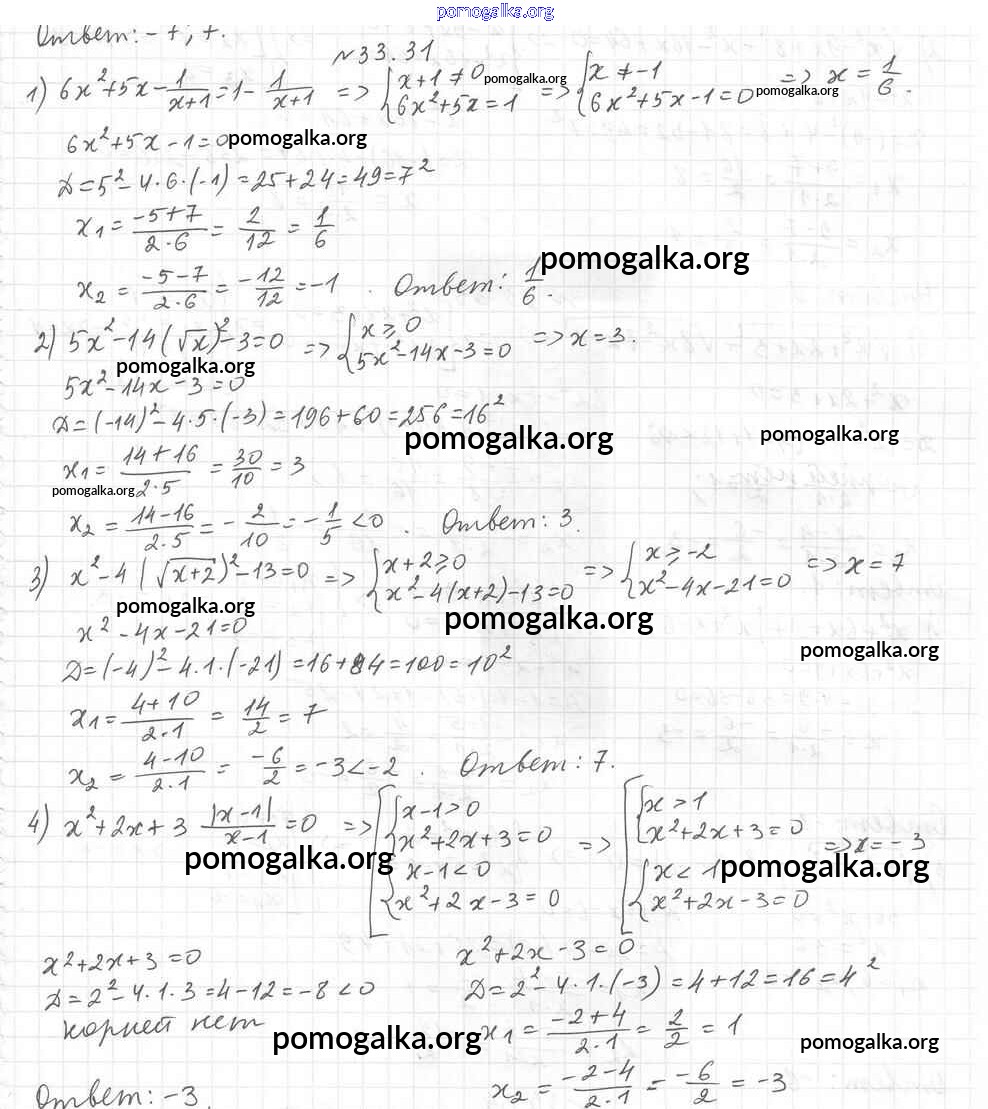 pomogalka.org
Ответ: - +; +.
№33.31
1) 6x²+5x - 1/(x+1) = 1 - 1/(x+1) => { x+1≠0 ; 6x²+5x=1 pomogalka.org => { x≠-1 ; 6x²+5x-1=0 pomogalka.org => x = 1/6.
6x²+5x-1=0 pomogalka.org
Д=5²-4·6·(-1)=25+24=49=7²
x₁ = (-5+7)/(2·6) = 2/12 = 1/6
pomogalka.org
x₂ = (-5-7)/(2·6) = -12/12 = -1. Ответ: 1/6.
2) 5x²-14(√x)²-3=0 => { x≥0 ; 5x²-14x-3=0 => x=3.
pomogalka.org
5x²-14x-3=0
Д=(-14)²-4·5·(-3)=196+60=256=16²
pomogalka.org pomogalka.org
x₁ = (14+16)/(2·5) = 30/10 = 3
pomogalka.org
x₂ = (14-16)/(2·5) = -2/10 = -1/5 <0. Ответ: 3.
3) x²-4(√(x+2))²-13=0 => { x+2≥0 ; x²-4(x+2)-13=0 => { x≥-2 ; x²-4x-21=0 => x=7
pomogalka.org pomogalka.org
x²-4x-21=0
pomogalka.org
Д=(-4)²-4·1·(-21)=16+84=100=10²
x₁ = (4+10)/(2·1) = 14/2 = 7
x₂ = (4-10)/(2·1) = -6/2 = -3<-2. Ответ: 7.
4) x²+2x+3 |x-1|/(x-1) = 0 => [ { x-1>0 ; x²+2x+3=0 ; { x-1<0 ; x²+2x-3=0 => [ { x>1 ; x²+2x+3=0 ; { x<1 ; x²+2x-3=0 => x=-3
pomogalka.org pomogalka.org
x²+2x+3=0
Д=2²-4·1·3=4-12=-8<0
корней нет
x²+2x-3=0
Д=2²-4·1·(-3)=4+12=16=4²
x₁ = (-2+4)/(2·1) = 2/2 = 1
pomogalka.org pomogalka.org
x₂ = (-2-4)/(2·1) = -6/2 = -3
Ответ: -3.